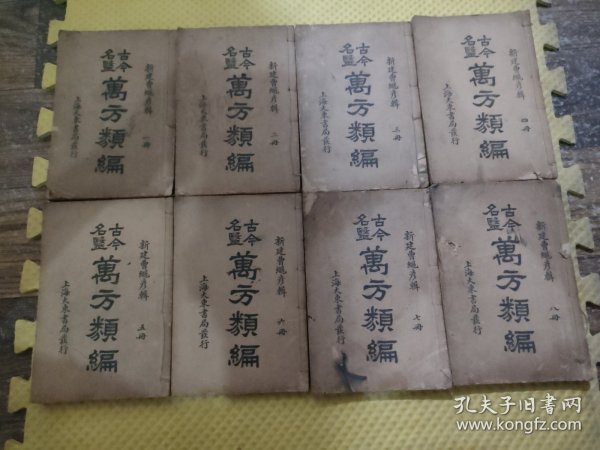 新建曹繩彦輯
古今
名醫
萬方類編
一冊
上海大東書局發行
新建曹繩彦輯
古今
名醫
萬方類編
二冊
上海大東書局發行
新建曹繩彦輯
古今
名醫
萬方類編
三冊
上海大東書局發行
新建曹繩彦輯
古今
名醫
萬方類編
四冊
上海大東書局發行
新建曹繩彦輯
古今
名醫
萬方類編
五冊
上海大東書局發行
新建曹繩彦輯
古今
名醫
萬方類編
六冊
上海大東書局發行
新建曹繩彦輯
古今
名醫
萬方類編
七冊
上海大東書局發行
新建曹繩彦輯
古今
名醫
萬方類編
八冊
上海大東書局發行
孔夫子旧书网
www.kongfz.com